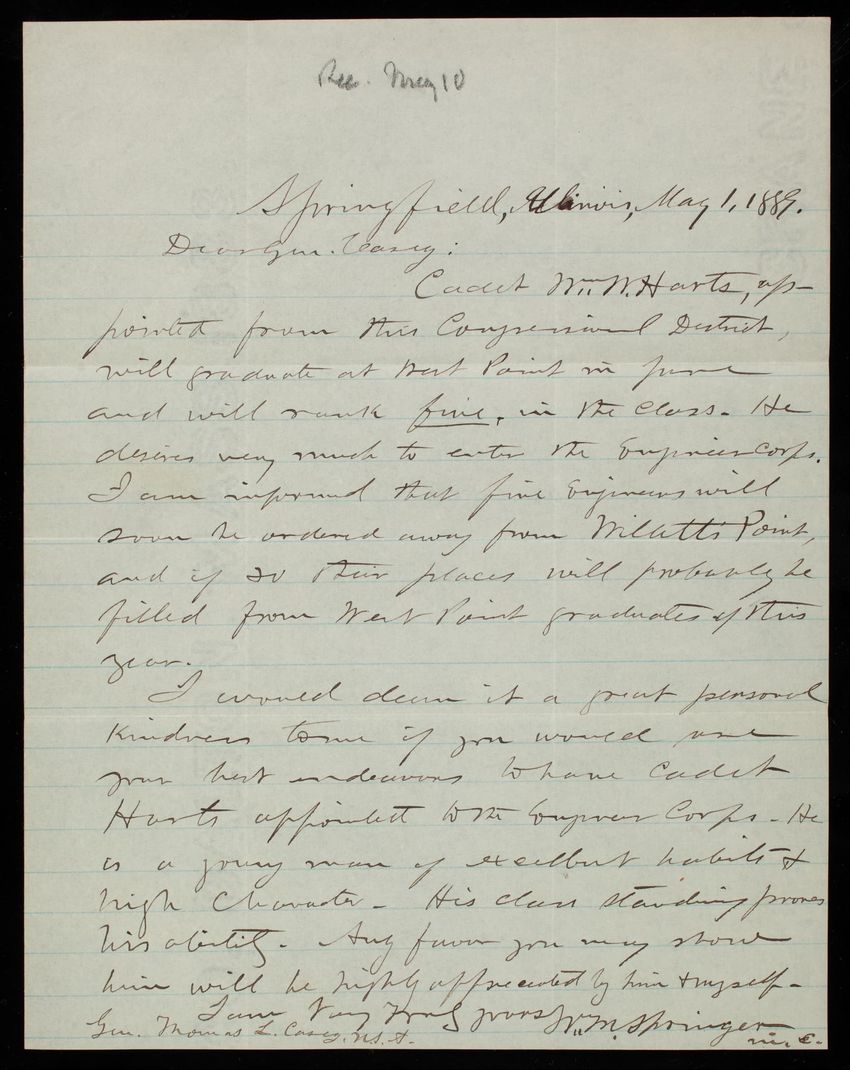 Rec. May 10
Springfield, Illinois, May 1, 1889.
Dear Gen. Casey:
Cadet Wm. W. Harts, ap-
pointed from this Congressional District,
will graduate at West Point in June
and will rank five, in the class. He
desires very much to enter the Engineer Corps.
I am informed that five Engineers will
soon be ordered away from Willetts Point,
and if so their places will probably be
filled from West Point graduates of this
year.
I would deem it a great personal
kindness to me if you would use
your best endeavors to have Cadet
Harts appointed to the Engineer Corps. He
is a young man of excellent habits &
high character. His class standing proves
his ability. Any favor you may show
him will be highly appreciated by him & myself.
I am Very Truly yours Wm. M. Springer
Gen. Thomas L. Casey, U.S.A. M.C.